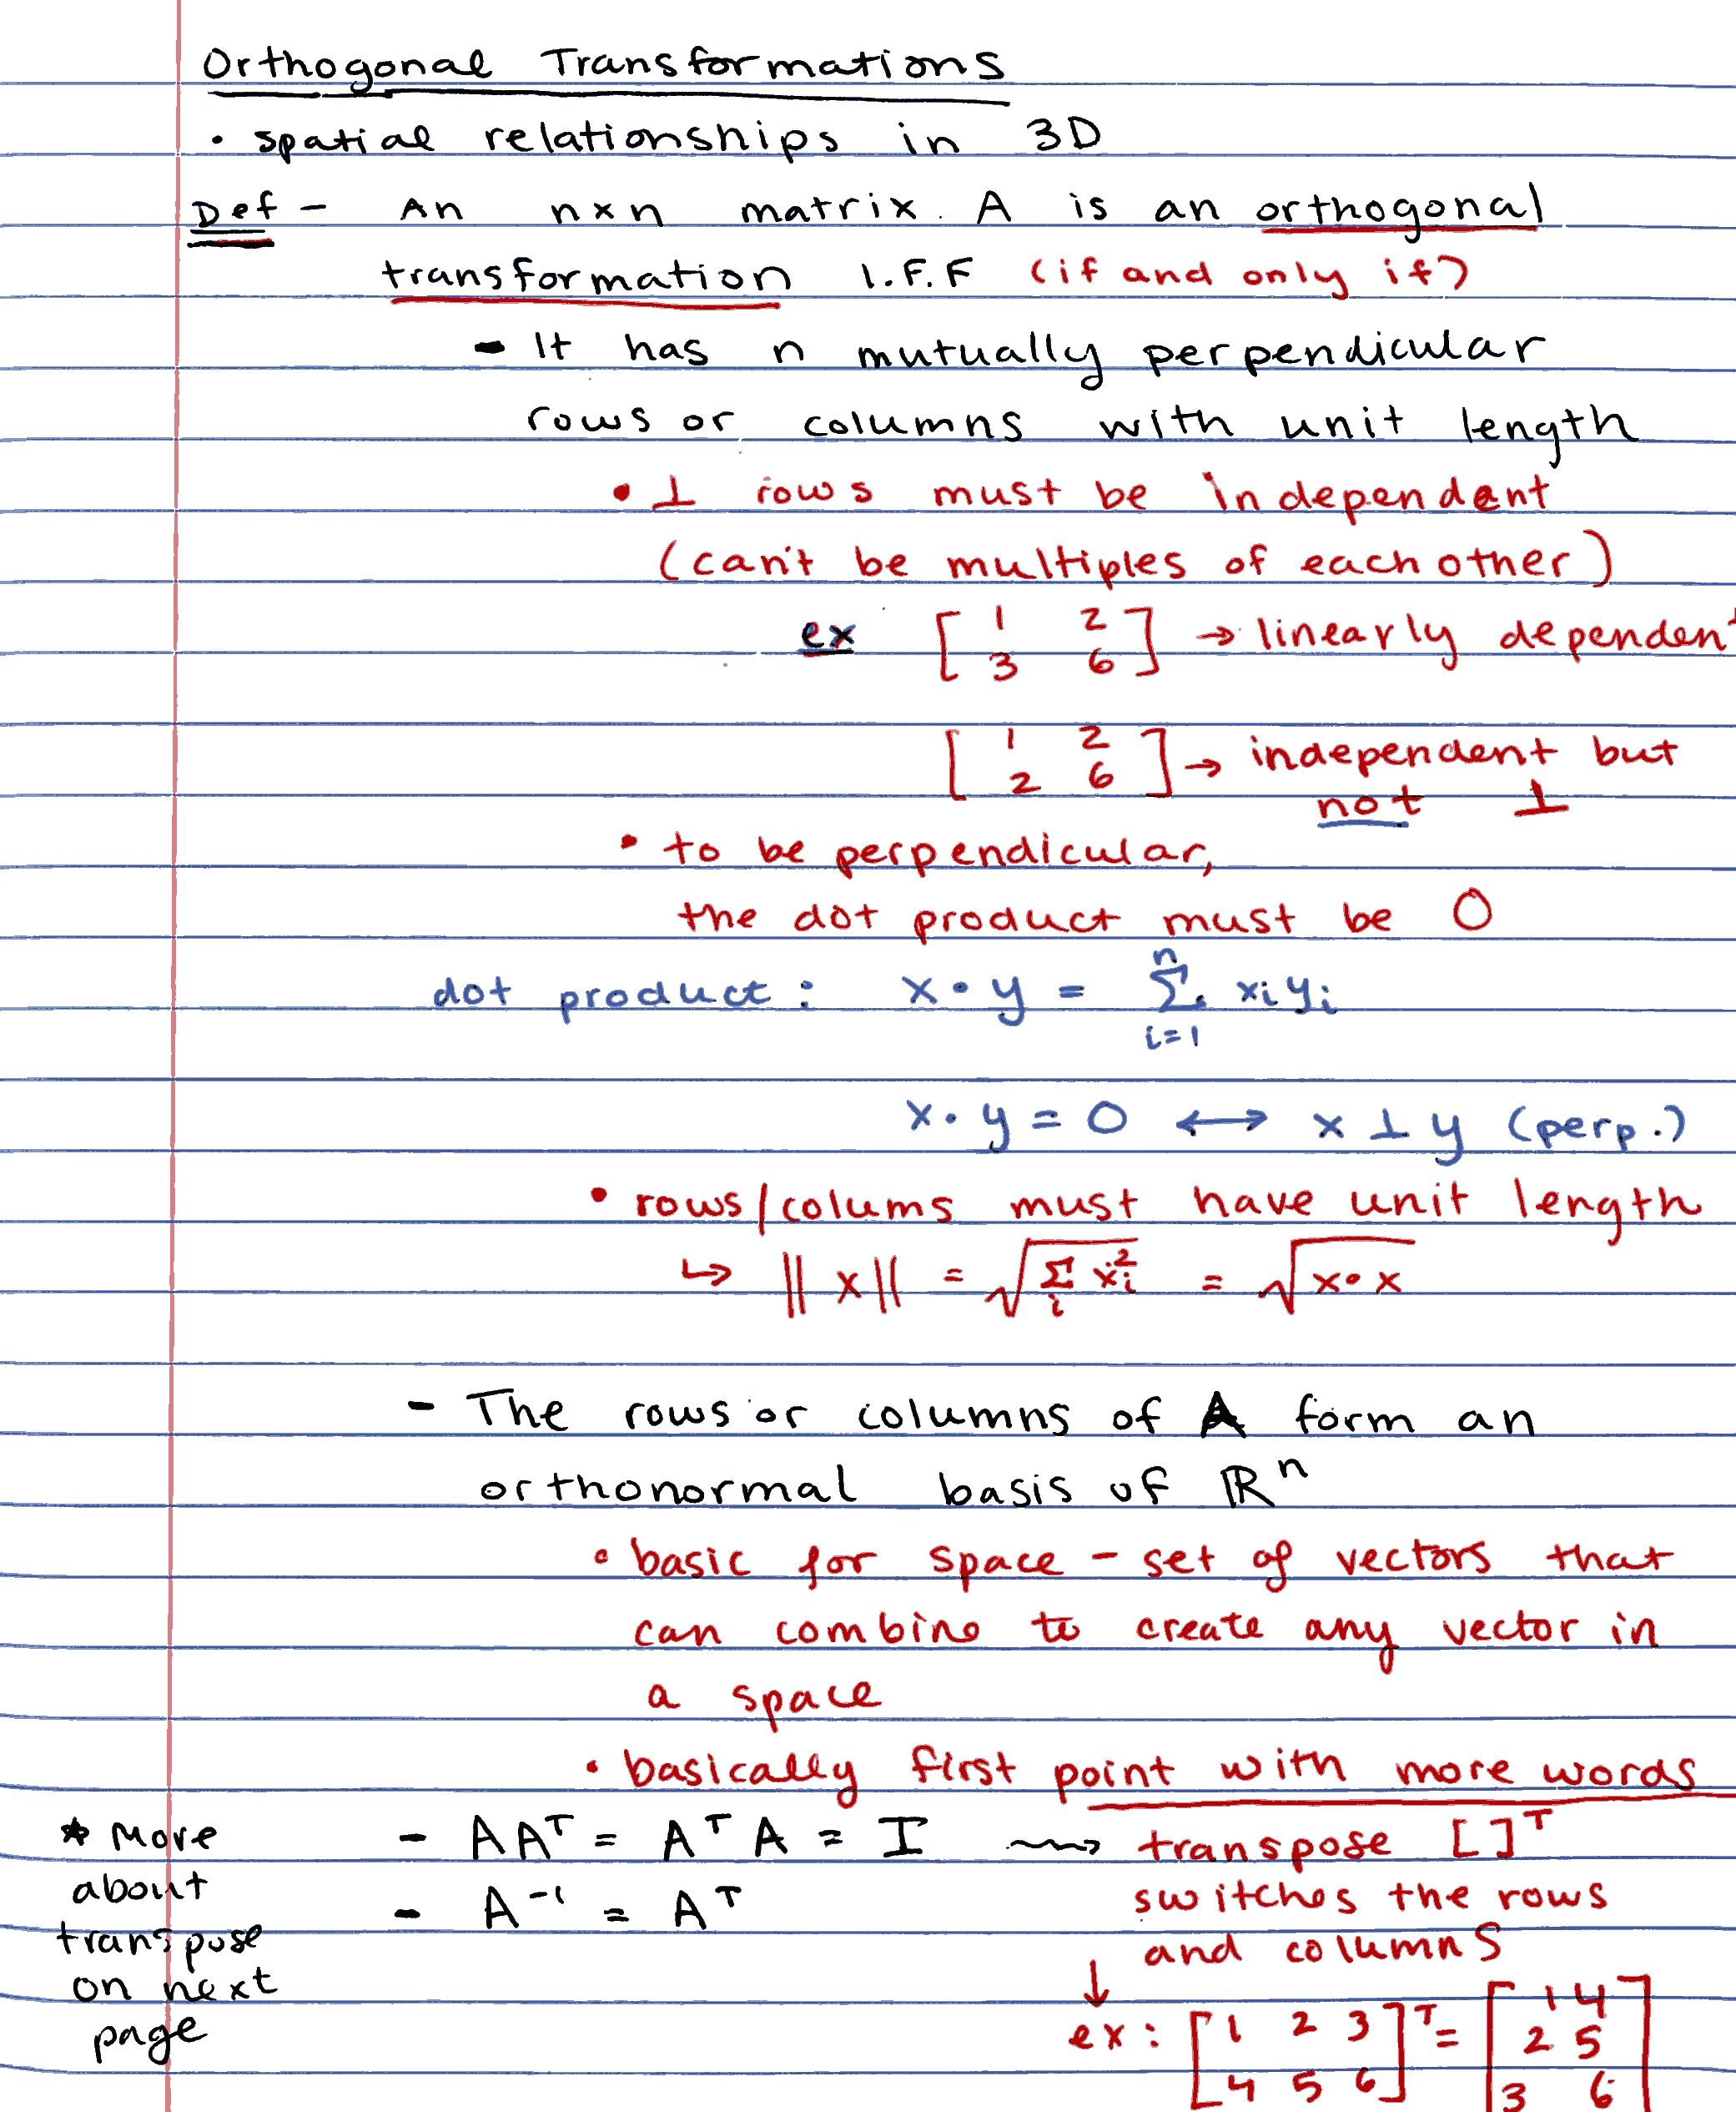 Orthogonal Transformations
• spatial relationships in 3D
Def - An nxn matrix A is an orthogonal
transformation I.F.F (if and only if)
- It has n mutually perpendicular
rows or columns with unit length
• ⊥ rows must be independent
(can't be multiples of each other)
ex [1 2
3 6] → linearly dependent
[1 2
2 6] → independent but
not ⊥
• to be perpendicular,
the dot product must be 0
dot product: x • y = Σ_{i=1}^{n} xᵢyᵢ
x • y = 0 ↔ x ⊥ y (perp.)
• rows/colums must have unit length
↳ ||x|| = √(Σᵢ xᵢ²) = √(x • x)
- The rows or columns of A form an
orthonormal basis of ℝⁿ
• basic for space - set of vectors that
can combine to create any vector in
a space
• basically first point with more words
- AAᵀ = AᵀA = I ⇝ transpose []ᵀ
switches the rows
and columns
- A⁻¹ = Aᵀ
↓
ex: [1 2 3
4 5 6]ᵀ = [1 4
2 5
3 6]
* More
about
transpose
on next
page